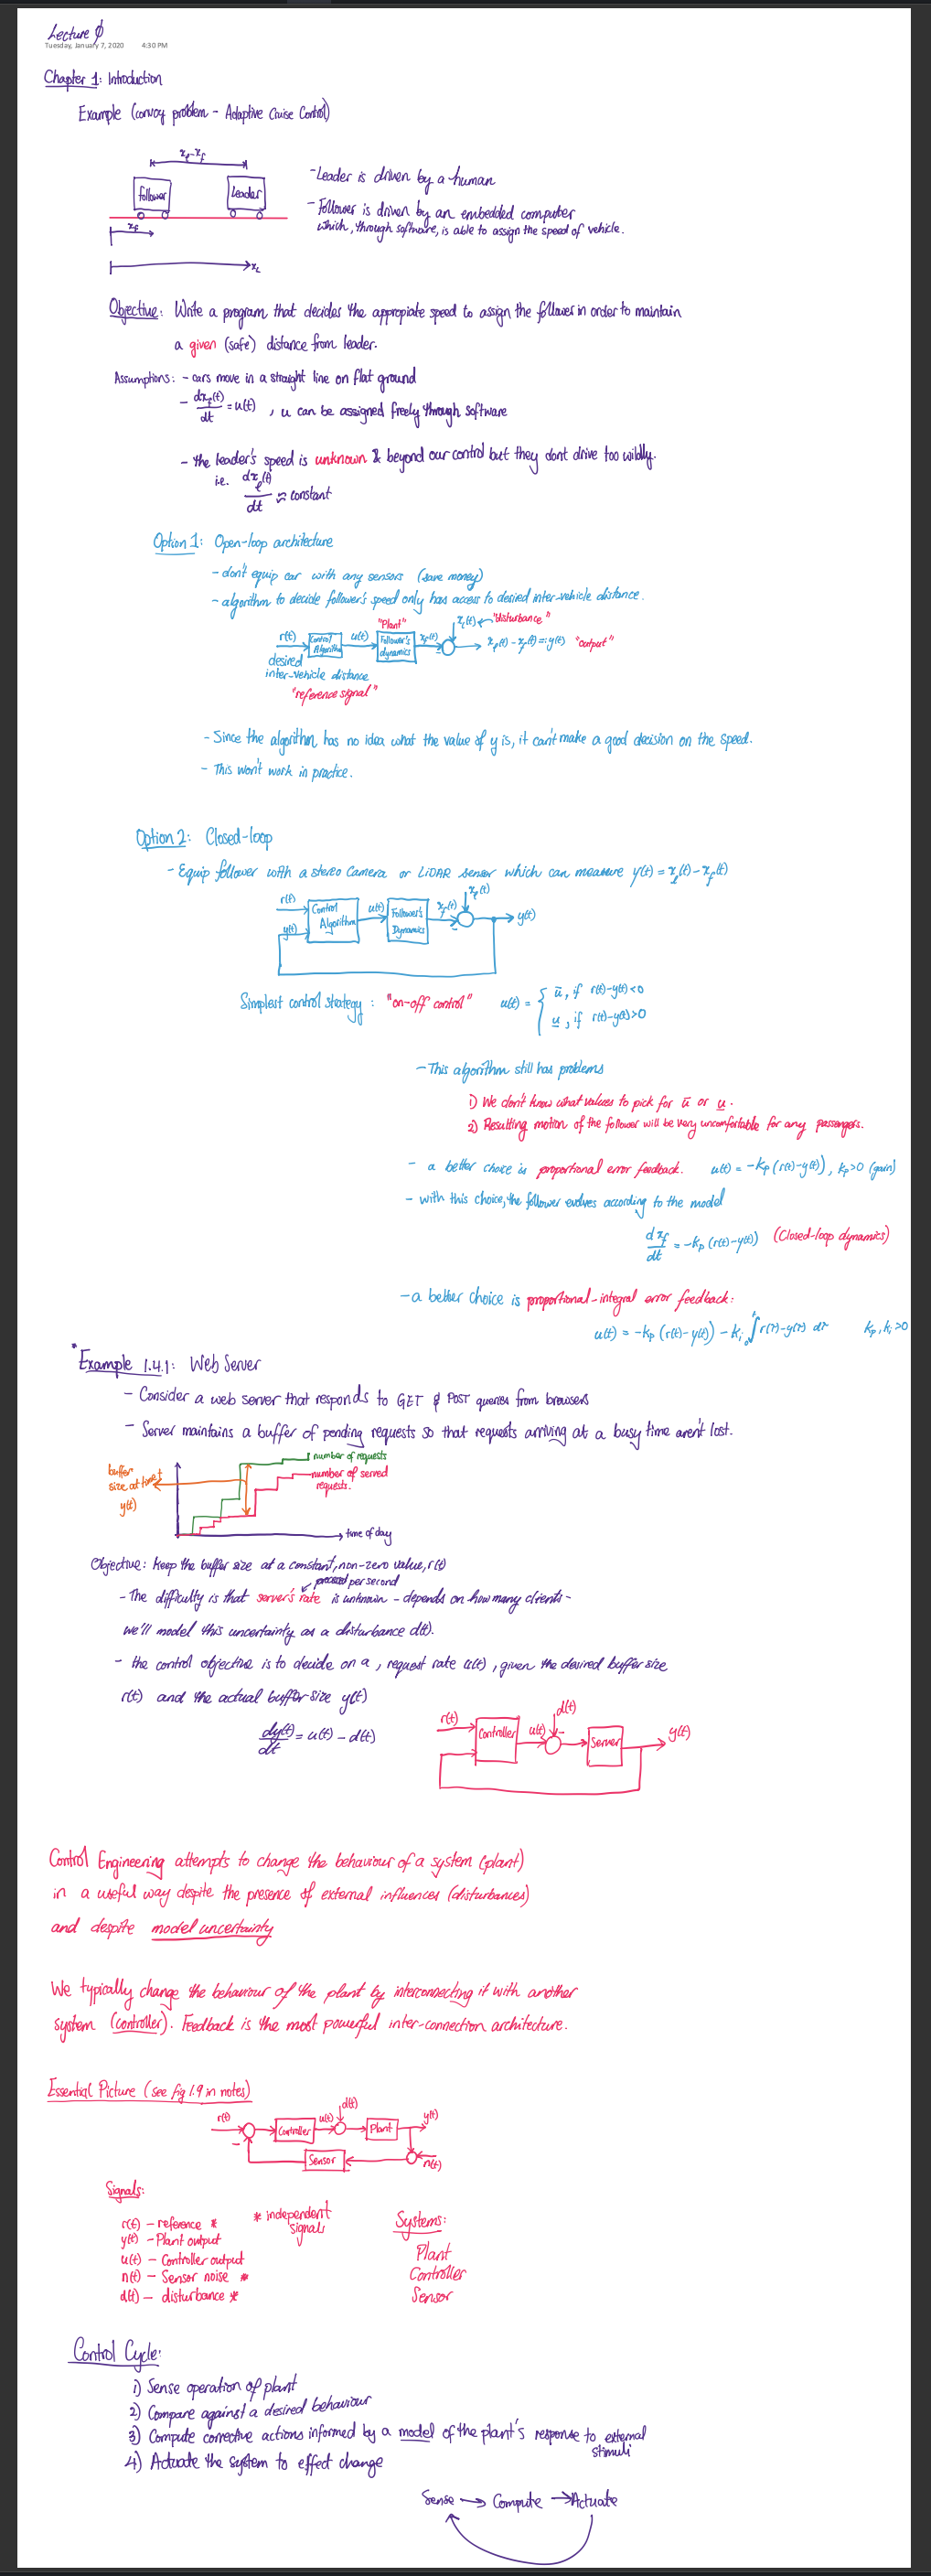 Lecture ∅
Tuesday, January 7, 2020 4:30 PM
Chapter 1: Introduction
Example (convoy problem - Adaptive Cruise Control)
x_l - x_f
follower
Leader
x_f
x_L
- Leader is driven by a human
- Follower is driven by an embedded computer
which, through software, is able to assign the speed of vehicle.
Objective: Write a program that decides the appropiate speed to assign the follower in order to maintain
a given (safe) distance from leader.
Assumptions: - cars move in a straight line on flat ground
- dx_f(t)/dt = u(t) , u can be assigned freely through software
- the leader's speed is unknown & beyond our control but they dont drive too wildly.
i.e. dx_l(t)/dt ≈ constant
Option 1: Open-loop architecture
- don't equip car with any sensors (save money)
- algorithm to decide follower's speed only has access to desired inter-vehicle distance.
r(t)
Control Algorithm
u(t)
"Plant"
Follower's dynamics
x_f(t)
-
x_l(t) ← "disturbance"
x_l(t) - x_f(t) =: y(t) "output"
desired
inter-vehicle distance
"reference signal"
- Since the algorithm has no idea what the value of y is, it can't make a good decision on the speed.
- This won't work in practice.
Option 2: Closed-loop
- Equip follower with a stereo camera or LiDAR sensor which can measure y(t) = x_l(t) - x_f(t)
r(t)
y(t)
Control Algorithm
u(t)
Follower's Dynamics
x_f(t)
-
x_l(t)
y(t)
Simplest control strategy: "on-off control" u(t) = { ū, if r(t)-y(t)<0
u̲, if r(t)-y(t)>0
- This algorithm still has problems
1) We don't know what values to pick for ū or u̲.
2) Resulting motion of the follower will be very uncomfortable for any passengers.
- a better choice is proportional error feedback. u(t) = -k_p (r(t)-y(t)), k_p>0 (gain)
- with this choice, the follower evolves according to the model
dx_f/dt = -k_p (r(t)-y(t)) (Closed-loop dynamics)
- a better choice is proportional-integral error feedback:
u(t) = -k_p (r(t)-y(t)) - k_i ∫₀ᵗ r(τ)-y(τ) dτ k_p, k_i >0
Example 1.4.1: Web Server
- Consider a web server that responds to GET & POST queries from browsers
- Server maintains a buffer of pending requests so that requests arriving at a busy time aren't lost.
number of requests
number of served
requests.
buffer
size at time t
y(t)
time of day
Objective: keep the buffer size at a constant, non-zero value, r(t)
per second
- The difficulty is that server's rate is unknown - depends on how many clients -
we'll model this uncertainty as a disturbance d(t).
- the control objective is to decide on a, request rate u(t), given the desired buffer size
r(t) and the actual buffer size y(t)
dy(t)/dt = u(t) - d(t)
r(t)
Controller
u(t)
d(t)
-
Server
y(t)
Control Engineering attempts to change the behaviour of a system (plant)
in a useful way despite the presence of external influences (disturbances)
and despite model uncertainty
We typically change the behaviour of the plant by interconnecting it with another
system (controller). Feedback is the most powerful inter-connection architecture.
Essential Picture (see fig 1.9 in notes)
r(t)
-
Controller
u(t)
d(t)
Plant
y(t)
Sensor
n(t)
Signals:
r(t) - reference *
y(t) - Plant output
u(t) - Controller output
n(t) - Sensor noise *
d(t) - disturbance *
* independent
signals
Systems:
Plant
Controller
Sensor
Control Cycle:
1) Sense operation of plant
2) Compare against a desired behaviour
3) Compute corrective actions informed by a model of the plant's response to external
stimuli
4) Actuate the system to effect change
Sense → Compute → Actuate